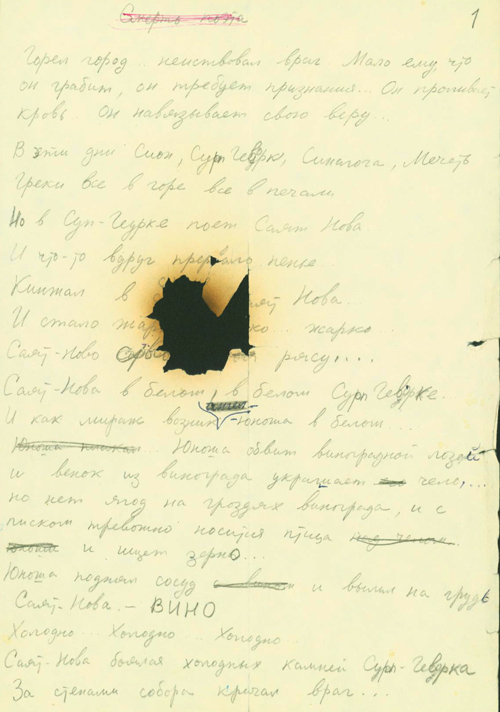 Смерть поэта
1
Горел город.. неиствовал враг Мало ему, что
он грабит, он требует признания... Он проливает
кровь. Он навязывает свою веру..
В эти дни Сион, Сурп Геворк, Синагога, Мечеть
Греки все в горе все в печали
Но в Сурп-Геурке поет Саят Нова
И что-то вдруг прервало пенье..
Кинжал в Нова..
И стало жарко... жарко...
Саят-Нова рясу....
Саят-Нова в белом, в белом Сурп Геворке..
ангел
И как мираж возник -Юноша в белом
Юноша Юноша обвит виноградной лозой
и венок из винограда украшает чело,...
но нет ягод на гроздях винограда, и с
писком тревожно носится птица над челом
юноши и ищет зерно...
Юноша поднял сосуд с вином и вылил на грудь
Саят-Нова. - ВИНО
Холодно.. Холодно.. Холодно..
Саят-Нова боялся холодных камней Сурп-Геворка
За стенами собора кричал враг...